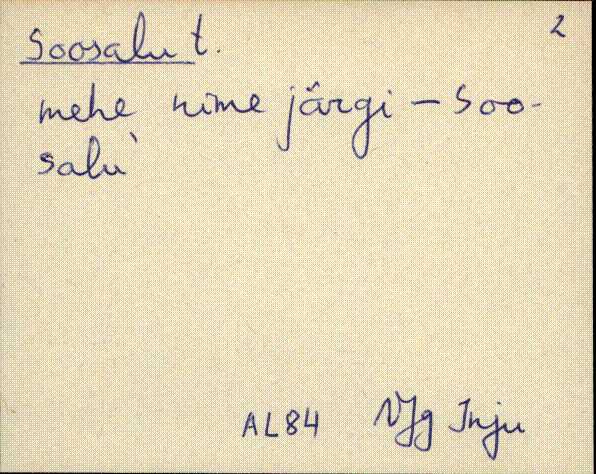 2
Soosalu t.
mehe nime järgi – Soo-
salu`
AL84 VJg Inju